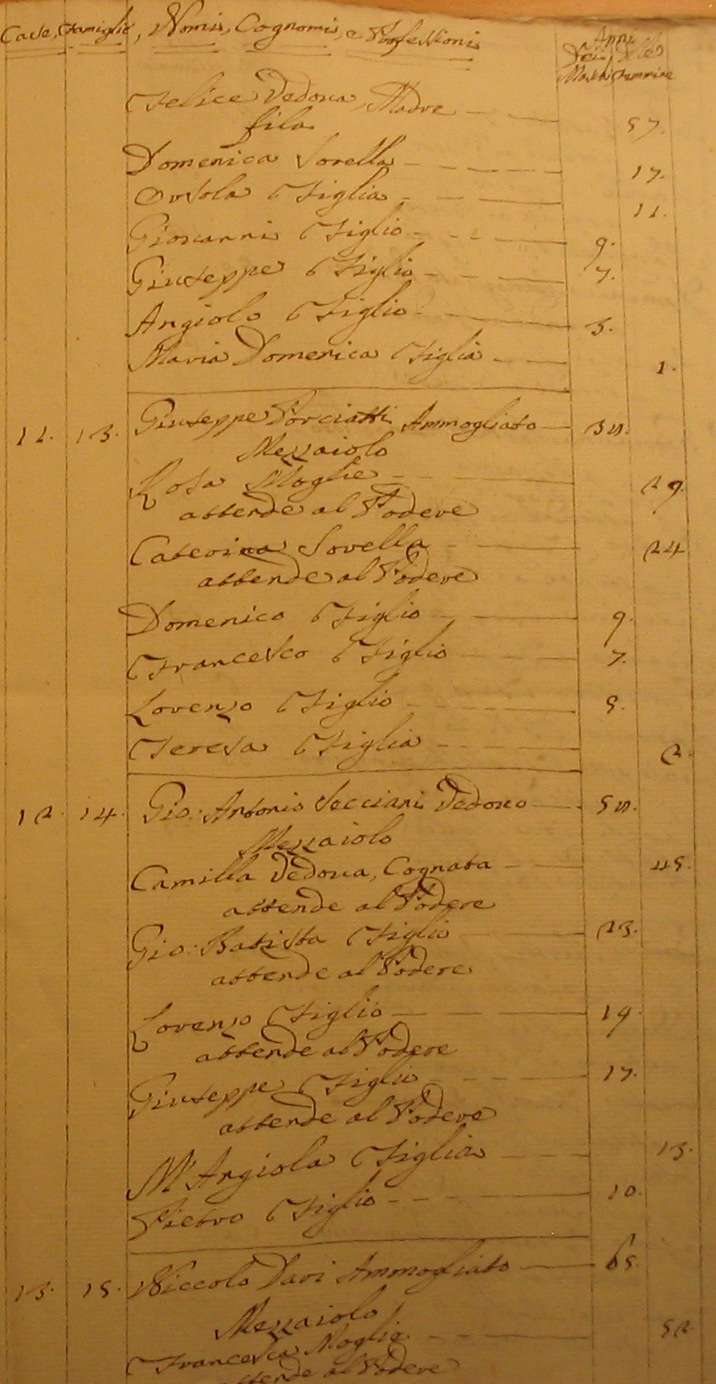 Case, Famiglie, Nomi, Cognomi, e Professioni Anni
Dei Delle
Maschi Femmine
Felice Vedova, Madre 57.
fila
Domenica Sorella 17.
Orsola Figlia 11.
Giovanni Figlio 9.
Giuseppe Figlio 7.
Angiolo Figlio 3.
Maria Domenica Figlia 1.
11. 13. Giuseppe Porciatti Ammogliato
Mezzaiolo
Rosa Moglie 29.
attende al Podere
Caterina Sorella 24
attende al Podere
Domenico Figlio 9.
Francesco Figlio 7.
Lorenzo Figlio 5.
Teresa Figlia 2.
12. 14. Gio: Antonio Secciani Vedovo
Mezzaiolo
Camilla Vedova, Cognata 45.
attende al Podere
Gio: Batista Figlio 23.
attende al Podere
Lorenzo Figlio 19.
attende al Podere
Giuseppe Figlio 17.
attende al Podere
Mª Angiola Figlia 13.
Pietro Figlio 10.
13. 15. Niccolo Ammogliato 65.
Mezzaiolo
Francesca Moglie 52.
attende al Podere